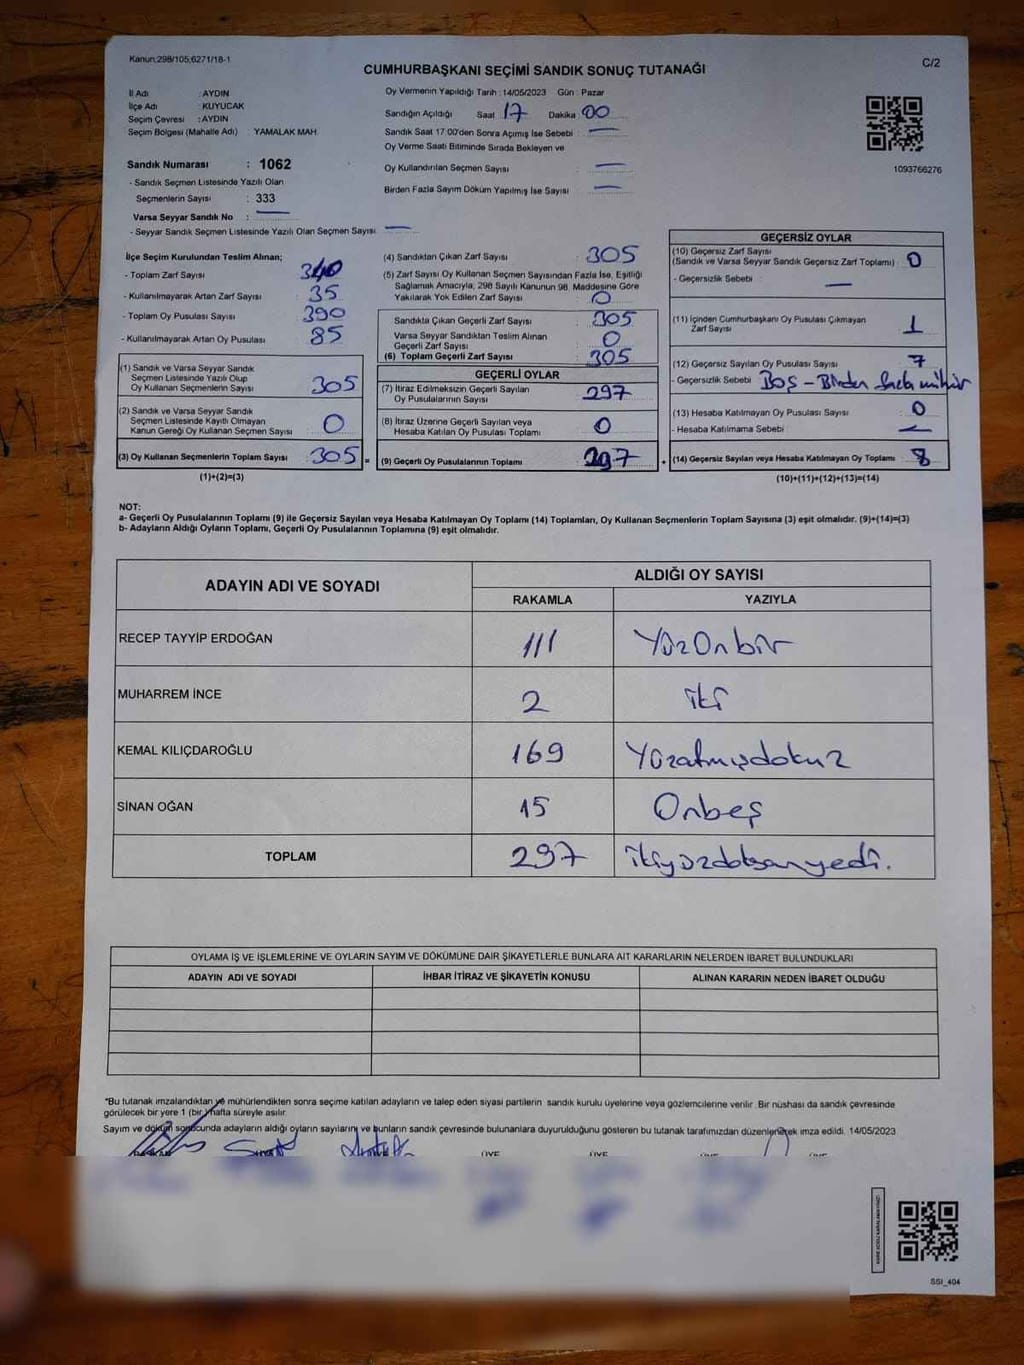 Kanun;298/105;6271/18-1
C/2
CUMHURBAŞKANI SEÇİMİ SANDIK SONUÇ TUTANAĞI
İl Adı : AYDIN
İlçe Adı : KUYUCAK
Seçim Çevresi : AYDIN
Seçim Bölgesi (Mahalle Adı) : YAMALAK MAH.
Sandık Numarası : 1062
- Sandık Seçmen Listesinde Yazılı Olan
Seçmenlerin Sayısı : 333
Varsa Seyyar Sandık No : —
- Seyyar Sandık Seçmen Listesinde Yazılı Olan Seçmen Sayısı —
Oy Vermenin Yapıldığı Tarih : 14/05/2023 Gün : Pazar
Sandığın Açıldığı Saat 17 Dakika 00
Sandık Saat 17:00'den Sonra Açımış İse Sebebi : —
Oy Verme Saati Bitiminde Sırada Bekleyen ve
Oy Kullandırılan Seçmen Sayısı —
Birden Fazla Sayım Döküm Yapılmış İse Sayısı —
1093766276
İlçe Seçim Kurulundan Teslim Alınan;
- Toplam Zarf Sayısı 340
- Kullanılmayarak Artan Zarf Sayısı 35
- Toplam Oy Pusulası Sayısı 390
- Kullanılmayarak Artan Oy Pusulası 85
(1) Sandık ve Varsa Seyyar Sandık
Seçmen Listesinde Yazılı Olup
Oy Kullanan Seçmenlerin Sayısı 305
(2) Sandık ve Varsa Seyyar Sandık
Seçmen Listesinde Kayıtlı Olmayan
Kanun Gereği Oy Kullanan Seçmen Sayısı 0
(3) Oy Kullanan Seçmenlerin Toplam Sayısı 305
(1)+(2)=(3)
(4) Sandıktan Çıkan Zarf Sayısı 305
(5) Zarf Sayısı Oy Kullanan Seçmen Sayısından Fazla İse, Eşitliği
Sağlamak Amacıyla, 298 Sayılı Kanunun 98. Maddesine Göre
Yakılarak Yok Edilen Zarf Sayısı 0
Sandıkta Çıkan Geçerli Zarf Sayısı 305
Varsa Seyyar Sandıktan Teslim Alınan
Geçerli Zarf Sayısı 0
(6) Toplam Geçerli Zarf Sayısı 305
GEÇERLİ OYLAR
(7) İtiraz Edilmeksizin Geçerli Sayılan
Oy Pusulalarının Sayısı 297
(8) İtiraz Üzerine Geçerli Sayılan veya
Hesaba Katılan Oy Pusulası Toplamı 0
= (9) Geçerli Oy Pusulalarının Toplamı 297
GEÇERSİZ OYLAR
(10) Geçersiz Zarf Sayısı
(Sandık ve Varsa Seyyar Sandık Geçersiz Zarf Toplamı) : 0
- Geçersizlik Sebebi —
(11) İçinden Cumhurbaşkanı Oy Pusulası Çıkmayan
Zarf Sayısı 1
(12) Geçersiz Sayılan Oy Pusulası Sayısı 7
- Geçersizlik Sebebi Boş - Birden fazla mühür
(13) Hesaba Katılmayan Oy Pusulası Sayısı 0
- Hesaba Katılmama Sebebi : —
+ (14) Geçersiz Sayılan veya Hesaba Katılmayan Oy Toplamı 8
(10)+(11)+(12)+(13)=(14)
NOT:
a- Geçerli Oy Pusulalarının Toplamı (9) ile Geçersiz Sayılan veya Hesaba Katılmayan Oy Toplamı (14) Toplamları, Oy Kullanan Seçmenlerin Toplam Sayısına (3) eşit olmalıdır. (9)+(14)=(3)
b- Adayların Aldığı Oyların Toplamı, Geçerli Oy Pusulalarının Toplamına (9) eşit olmalıdır.
ADAYIN ADI VE SOYADI
ALDIĞI OY SAYISI
RAKAMLA YAZIYLA
RECEP TAYYİP ERDOĞAN 111 YüzOnbir
MUHARREM İNCE 2 iki
KEMAL KILIÇDAROĞLU 169 Yüzatmışdokuz
SİNAN OĞAN 15 Onbeş
TOPLAM 297 ikiyüzdoksanyedi.
OYLAMA İŞ VE İŞLEMLERİNE VE OYLARIN SAYIM VE DÖKÜMÜNE DAİR ŞİKAYETLERLE BUNLARA AİT KARARLARIN NELERDEN İBARET BULUNDUKLARI
ADAYIN ADI VE SOYADI İHBAR İTİRAZ VE ŞİKAYETİN KONUSU ALINAN KARARIN NEDEN İBARET OLDUĞU
*Bu tutanak imzalandıktan ve mühürlendikten sonra seçime katılan adayların ve talep eden siyasi partilerin sandık kurulu üyelerine veya gözlemcilerine verilir. Bir nüshası da sandık çevresinde
görülecek bir yere 1 (bir) hafta süreyle asılır.
Sayım ve döküm sonucunda adayların aldığı oyların sayılarını ve bunların sandık çevresinde bulunanlara duyurulduğunu gösteren bu tutanak tarafımızdan düzenlenerek imza edildi. 14/05/2023
SSI_404